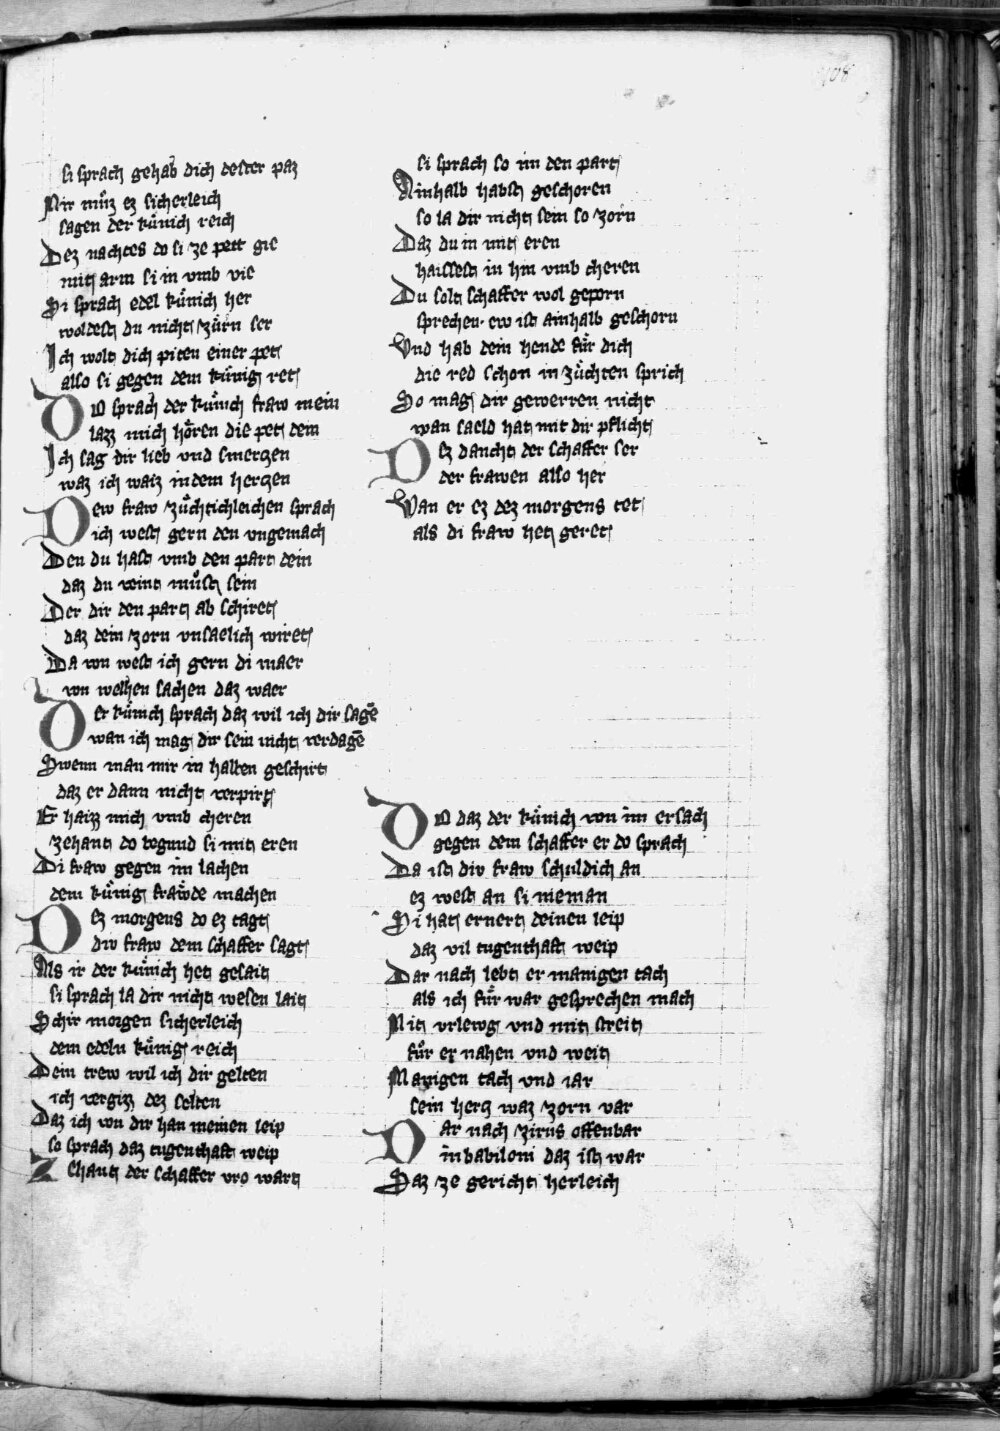 108
si sprach gehab dich dester paz
Mir muͤz ez sicherleich
sagen der kuͤnich reich
Dez nachtes do si ze pett gie
mit arm si in vmb vie
Si sprach edel kuͤnich her
woldest du nicht zuͤrn ser
Ich wolt dich piten einer pet
also si gegen dem kuͤnig ret
Do sprach der kuͤnich fraw mein
lazz mich hoͤren die pet dein
Ich sag dir lieb vnd smerczen
waz ich waiz in dem herczen
Dew fraw zuͤchtichleichen sprach
ich west gern den vngemach
Den du hast vmb den part dein
daz du veint muͤst sein
Der dir den part ab schiret
daz dein zorn vnsaelich wiret
Da von west ich gern di maer
von welhen sachen daz waer
Der kuͤnich sprach daz wil ich dir sagē
wan ich mag dir sein nicht verdagē
Swenn man mir in halben geschirt
daz er dann nicht verpirt
Er haizz mich vmb cheren
zehant do begund si mit eren
Di fraw gegen im lachen
dem kuͤnig fraͤwde machen
Dez morgens do ez tagt
div fraw dem schaffer sagt
Als ir der kuͤnich het gesait
si sprach la dir nicht wesen lait
Schir morgen sicherleich
dem edeln kuͤnig reich
Dein trew wil ich dir gelten
ich vergizz dez selten
Daz ich von dir han meinen leip
so sprach daz tugenthaft weip
Zehant der schaffer vro wart
si sprach so im den part
Ainhalb habst geschoren
so la dir nicht sein so zorn
Daz du in mit eren
haissest in hin vmb cheren
Du solt schaffer wol geporn
sprechen. ew ist ainhalb geschorn
Vnd hab dein hende fuͤr dich
die red schon in zuͤchten sprich
So mag dir gewerren nicht
wan saeld hat mit dir pflicht
Dez daucht der schaffer ser
der frawen also her
Wan er ez dez morgens tet
als di fraw het geret
Do daz der kuͤnich von im ersach
gegen dem schaffer er do sprach
Da ist div fraw schuldich an
ez west an si nieman
Si hat ernert deinen leip
daz vil tugenthaft weip
Dar nach lebt er manigen tach
als ich fuͤr war gesprechen mach
Mit vrlewg vnd mit streit
fuͤr er nahen vnd weit
Manigen tach vnd iar
sein hercz waz zorn var
Dar nach zirus offenbar
in babiloni daz ist war
Saz ze gericht herleich